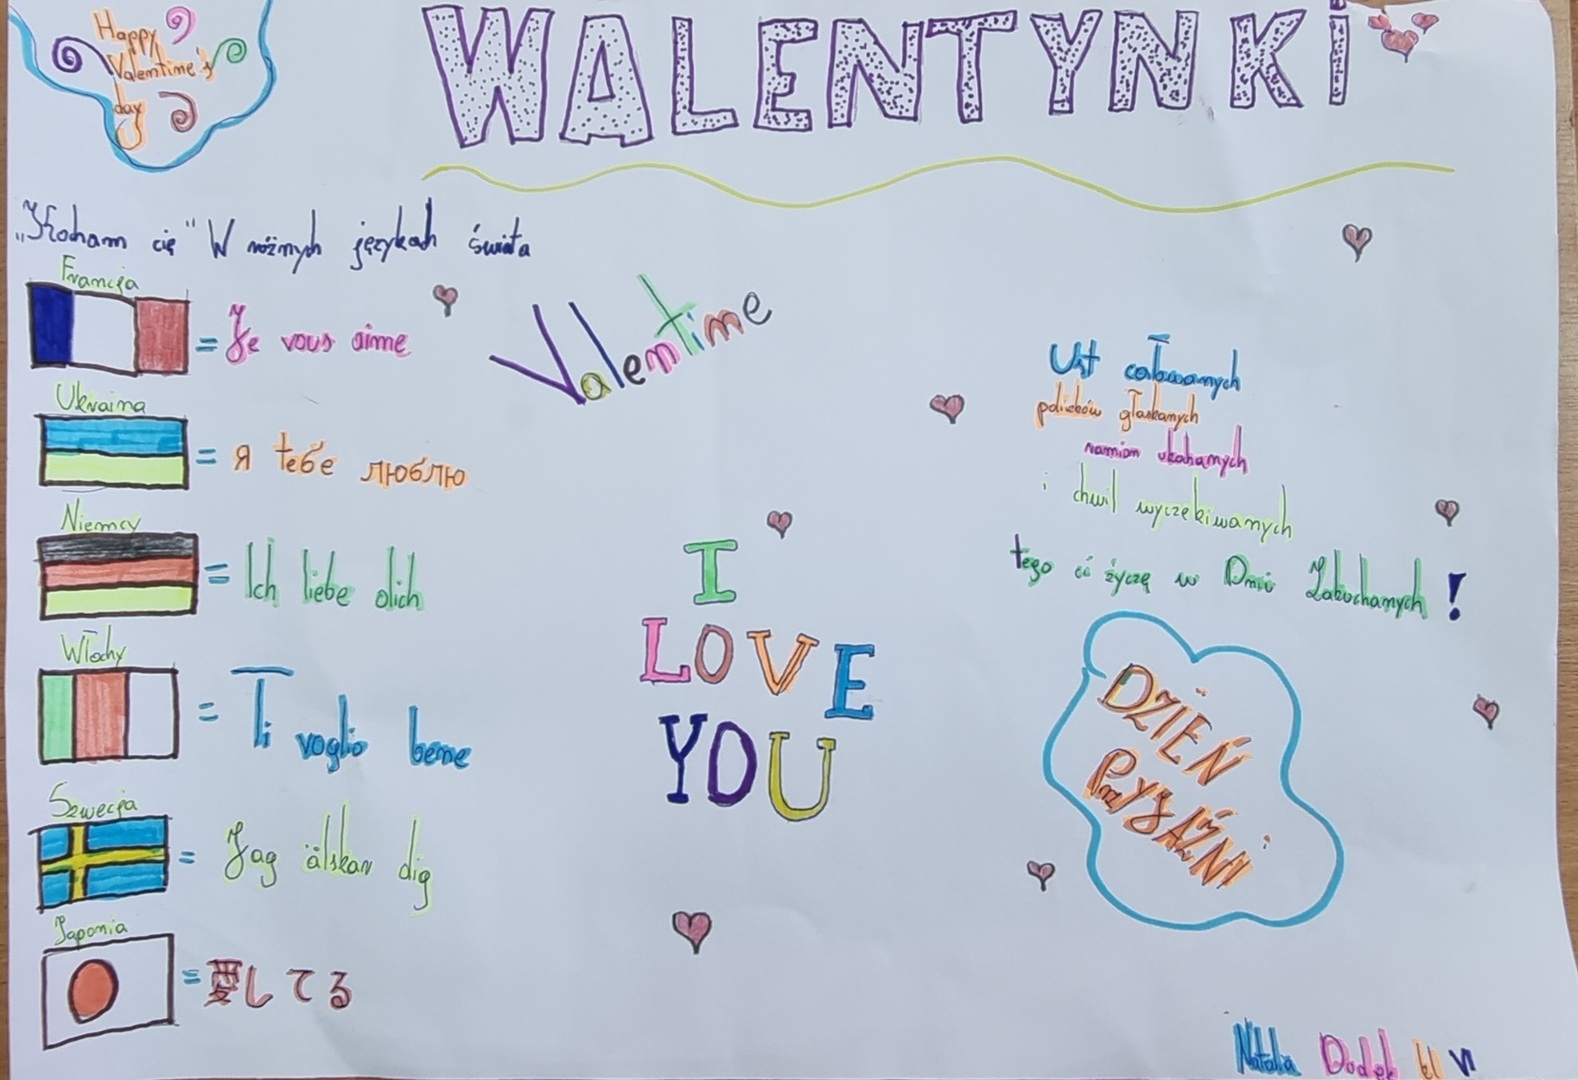 Happy
Valentine's
day
WALENTYNKI
„Kocham cię" W różnych językach świata
Francja
= Je vous aime
Ukraina
= я тебе люблю
Niemcy
= Ich liebe dich
Włochy
= Ti voglio bene
Szwecja
= Jag älskar dig
Japonia
= 愛してる
Valentine
I
LOVE
YOU
Ust całowanych
policzków głaskanych
ramion ukochanych
i chwil wyczekiwanych
tego ci życzę w Dniu Zakochanych!
DZIEŃ
PRZYJAŹNI
Natalia Dudek kl VI